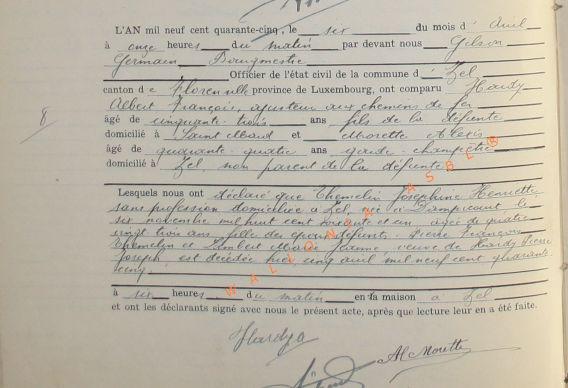 L'AN mil neuf cent quarante-cinq, le six du mois d' Avril
à onze heures du matin par devant nous Gilson
Germain Bourgmestre
Officier de l'état civil de la commune d' Izel
canton de Florenville province de Luxembourg, ont comparu Hardy
Albert François, ajusteur aux chemins de fer
8
âgé de cinquante-trois ans fils de la défunte
domicilié à Saint Mard et Morette Alexis
âgé de quarante-quatre ans garde-champêtre
domicilié à Izel, non parent de la défunte
Lesquels nous ont déclaré que Themelin Joséphine Henriette
sans profession domiciliée à Izel, née à Dampicourt le
six novembre mil huit cent soixante et un âgée de quatre
vingt trois ans, fille des époux défunts Pierre François
Themelin et Limbert Marie Jeanne, veuve de Hardy Pierre
Joseph, est décédée hier, cinq avril mil neuf cent quarante
cinq
à six heures du matin en sa maison à Izel
et ont les déclarants signé avec nous le présent acte, après que lecture leur en a été faite.
WALLONIA ASBL
Hardy a
Al Morette